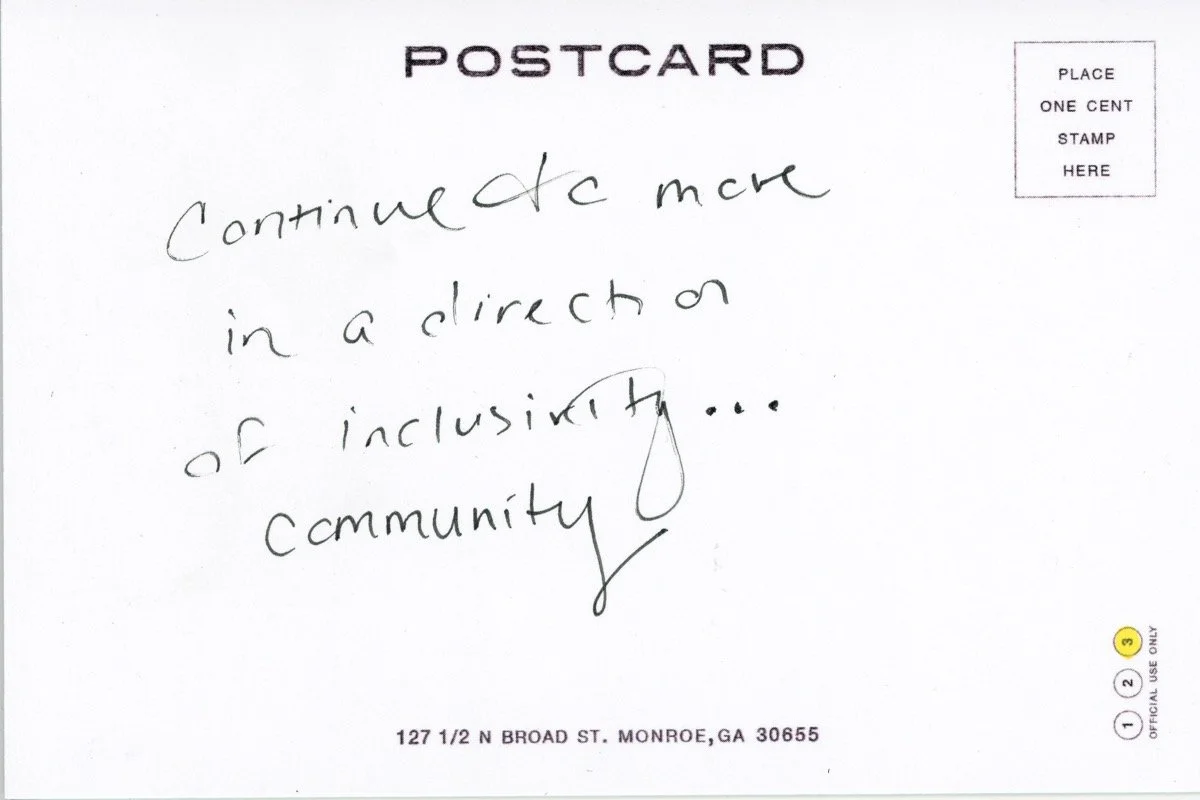 POSTCARD
PLACE
ONE CENT
STAMP
HERE
Continue to move
in a direction
of inclusivity...
community
3
2
1
OFFICIAL USE ONLY
127 1/2 N BROAD ST. MONROE,GA 30655